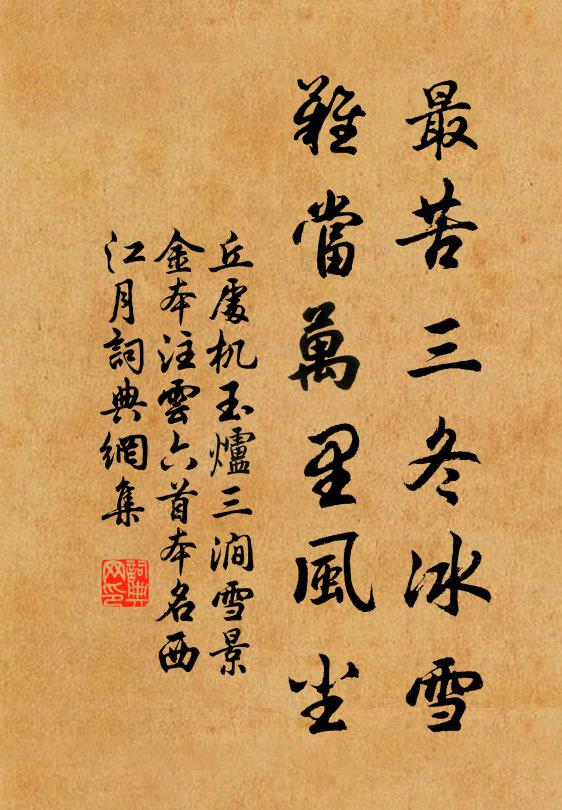 最苦三冬冰雪
難當萬里風尘
丘處机玉爐三澗雪景
金本注雲六首本名西
江月詞典網集
詞典網印